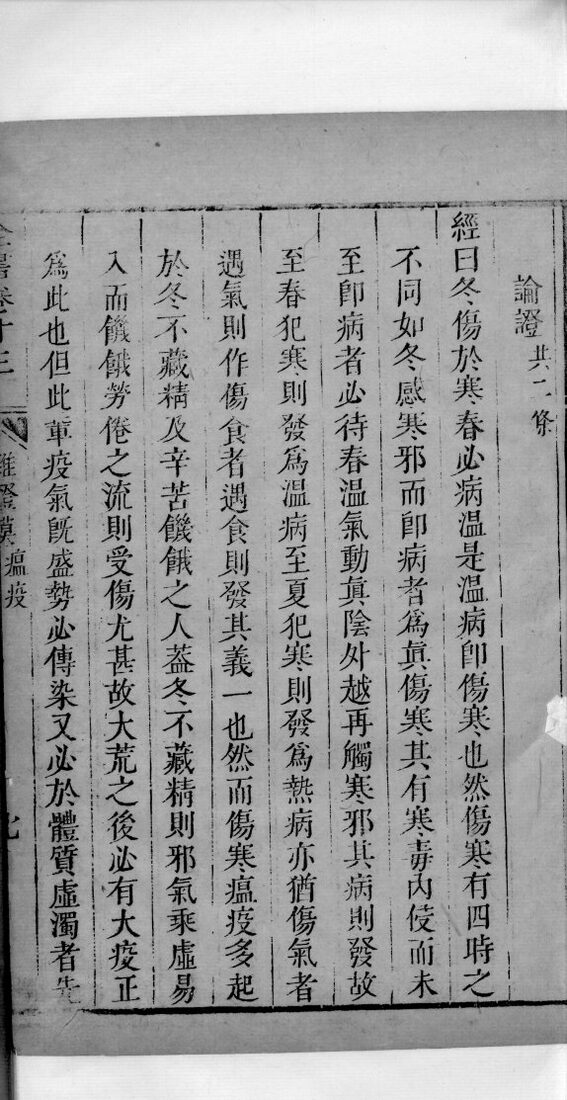 論證共二條
經曰冬傷於寒春必病温是温病卽傷寒也然傷寒有四時之
不同如冬感寒邪而卽病者爲眞傷寒其有寒毒內侵而未
至卽病者必待春温氣動眞陰外越再觸寒邪其病則發故
至春犯寒則發爲温病至夏犯寒則發爲熱病亦猶傷氣者
遇氣則作傷食者遇食則發其義一也然而傷寒瘟疫多起
於冬不藏精及辛苦饑餓之人葢冬不藏精則邪氣乘虛易
入而饑餓勞倦之流則受傷尤甚故大荒之後必有大疫正
爲此也但此輩疫氣旣盛勢必傳染又必於體質虛濁者先
全書卷十三
雜證謨 瘟疫